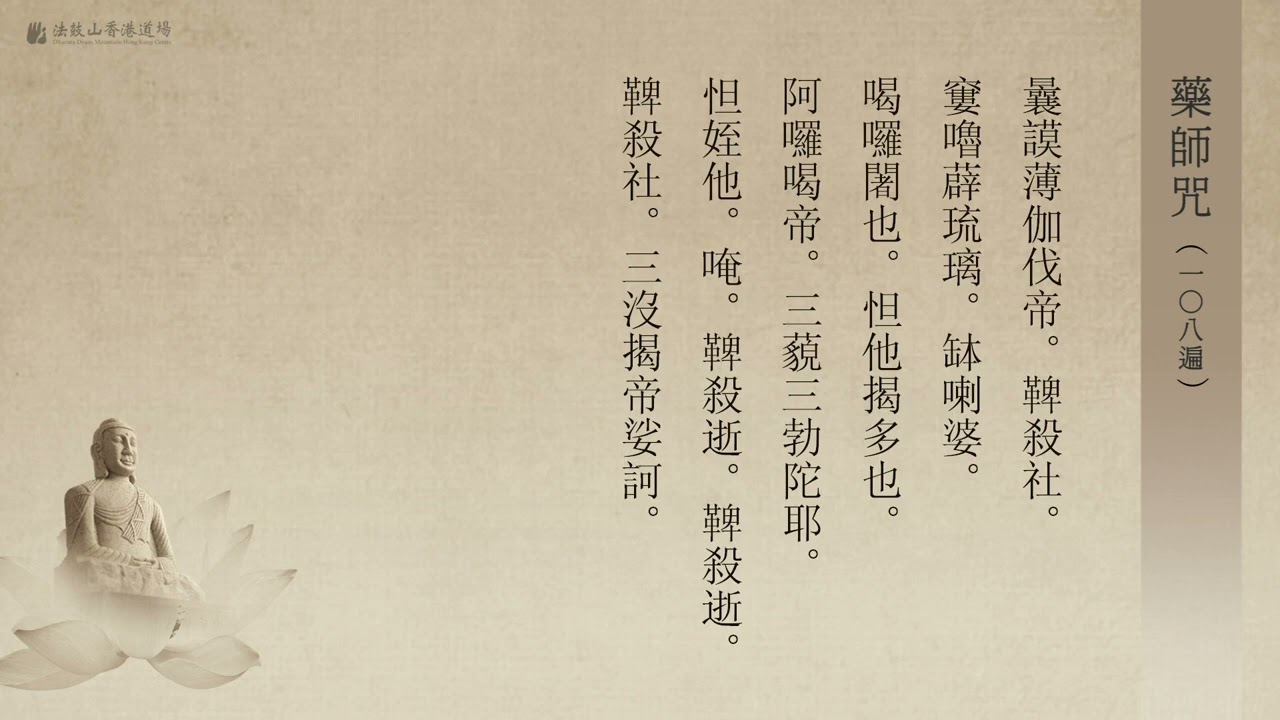 法鼓山香港道場
Dharma Drum Mountain Hong Kong Centre
藥師咒（一〇八遍）
曩謨薄伽伐帝。鞞殺社。
窶嚕薜琉璃。缽喇婆。
喝囉闍也。怛他揭多也。
阿囉喝帝。三藐三勃陀耶。
怛姪他。唵。鞞殺逝。鞞殺逝。
鞞殺社。三沒揭帝娑訶。